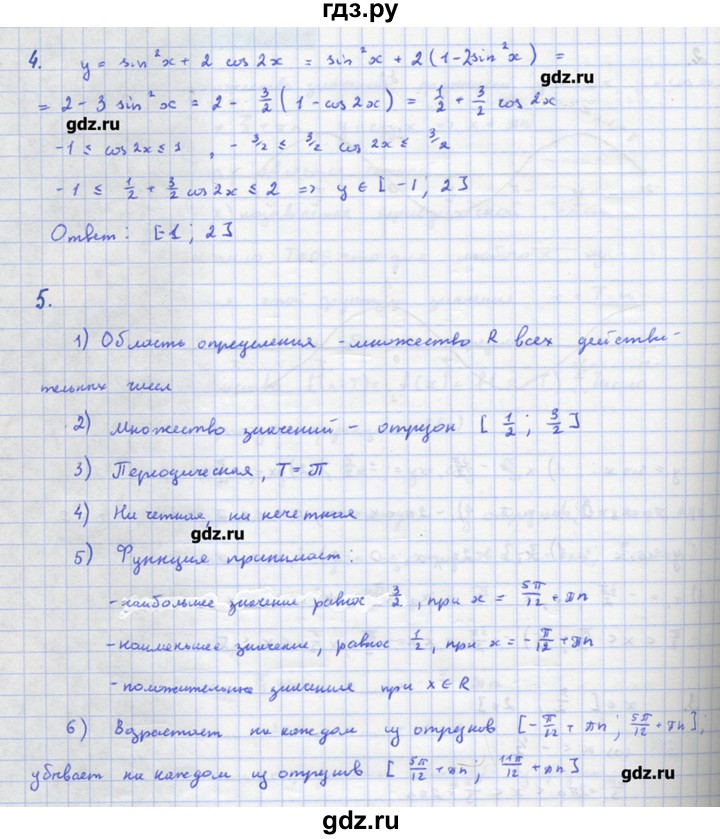 гдз.ру
4. y = sin²x + 2 cos 2x = sin²x + 2(1-2sin²x) =
= 2 - 3 sin²x = 2 - 3/2 (1 - cos 2x) = 1/2 + 3/2 cos 2x
gdz.ru
gdz.ru
-1 ≤ cos 2x ≤ 1 , - 3/2 ≤ 3/2 cos 2x ≤ 3/2
-1 ≤ 1/2 + 3/2 cos 2x ≤ 2 => y ∈ [-1 ; 2]
Ответ: [-1 ; 2]
5.
1) Область определения - множество R всех действи-
тельных чисел
2) Множество значений - отрезок [ 1/2 ; 3/2 ]
3) Периодическая, T = π
4) Ни четная, ни нечетная
gdz.ru
5) Функция принимает:
- наибольшее значение равное 3/2, при x = 5π/12 + πn
- наименьшее значение, равное 1/2, при x = -π/12 + πn
- положительные значения при x ∈ R
6) Возрастает на каждом из отрезков [-π/12 + πn ; 5π/12 + πn];
убывает на каждом из отрезков [ 5π/12 + πn ; 11π/12 + πn ]
gdz.ru
gdz.ru